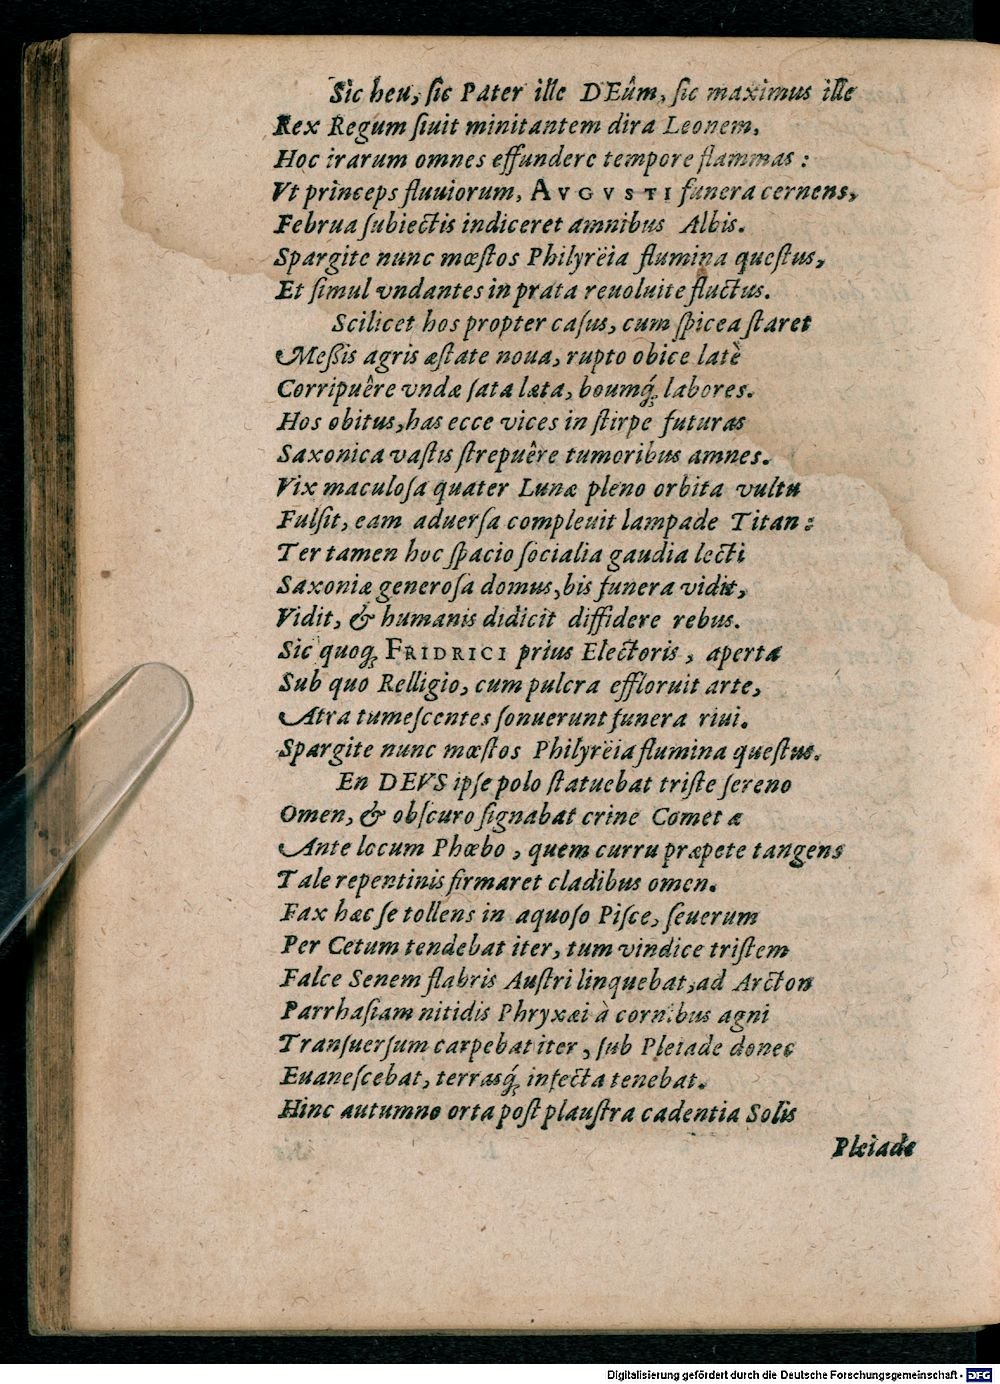 Sic heu, ſic Pater ille DEûm, ſic maximus ille
Rex Regum ſiuit minitantem dira Leonem,
Hoc irarum omnes effundere tempore flammas :
Vt princeps fluuiorum, AVGVSTI funera cernens,
Februa ſubiectis indiceret amnibus Albis.
Spargite nunc mœſtos Philyrëia flumina queſtus,
Et ſimul vndantes in prata reuoluite fluctus.
Scilicet hos propter caſus, cum ſpicea ſtaret
Meßis agris æſtate noua, rupto obice latè
Corripuêre vndæ ſata læta, boumq́ꝫ labores.
Hos obitus, has ecce vices in ſtirpe futuras
Saxonica vaſtis ſtrepuêre tumoribus amnes.
Vix maculoſa quater Lunæ pleno orbita vultu
Fulſit, eam aduerſa compleuit lampade Titan :
Ter tamen hoc ſpacio ſocialia gaudia lecti
Saxoniæ generoſa domus, bis funera vidit,
Vidit, & humanis didicit diffidere rebus.
Sic quoqꝫ FRIDRICI prius Electoris, apertæ
Sub quo Relligio, cum pulcra effloruit arte,
Atra tumeſcentes ſonuerunt funera riui.
Spargite nunc mœſtos Philyrëia flumina queſtus.
En DEVS ipſe polo ſtatuebat triſte ſereno
Omen, & obſcuro ſignabat crine Cometæ
Ante locum Phœbo, quem curru præpete tangens
Tale repentinis firmaret cladibus omen.
Fax hæc ſe tollens in aquoſo Piſce, ſeuerum
Per Cetum tendebat iter, tum vindice triſtem
Falce Senem flabris Auſtri linquebat, ad Arcton
Parrhaſiam nitidis Phryxæi à cornibus agni
Tranſuerſum carpebat iter, ſub Pleiade donec
Euaneſcebat, terrasq́ꝫ infecta tenebat.
Hinc autumno orta poſt plauſtra cadentia Solis
Pleiade
Digitalisierung gefördert durch die Deutsche Forschungsgemeinschaft - DFG